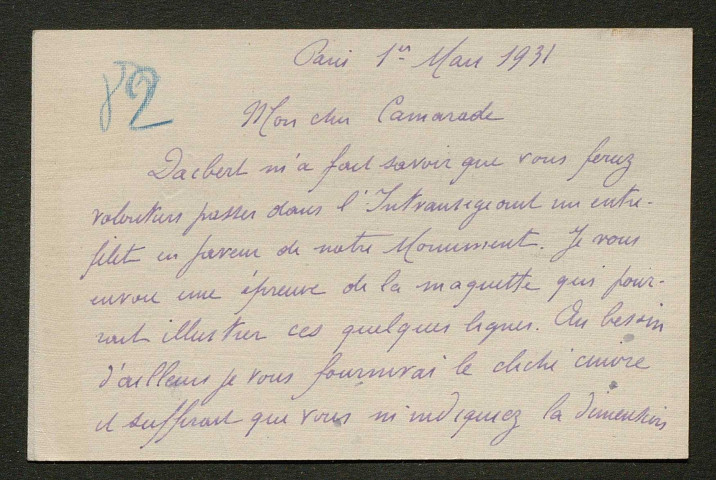 Paris 1er Mars 1931
82
Mon cher Camarade
Dacbert m'a fait savoir que vous feriez
volontiers passer dans l'Intransigeant un entre-
filet en faveur de notre Monument. Je vous
envoie une épreuve de la maquette qui pour-
rait illustrer ces quelques lignes. Au besoin
d'ailleurs je vous fournirai le cliché cuivre
il suffirait que vous m'indiquiez la dimension